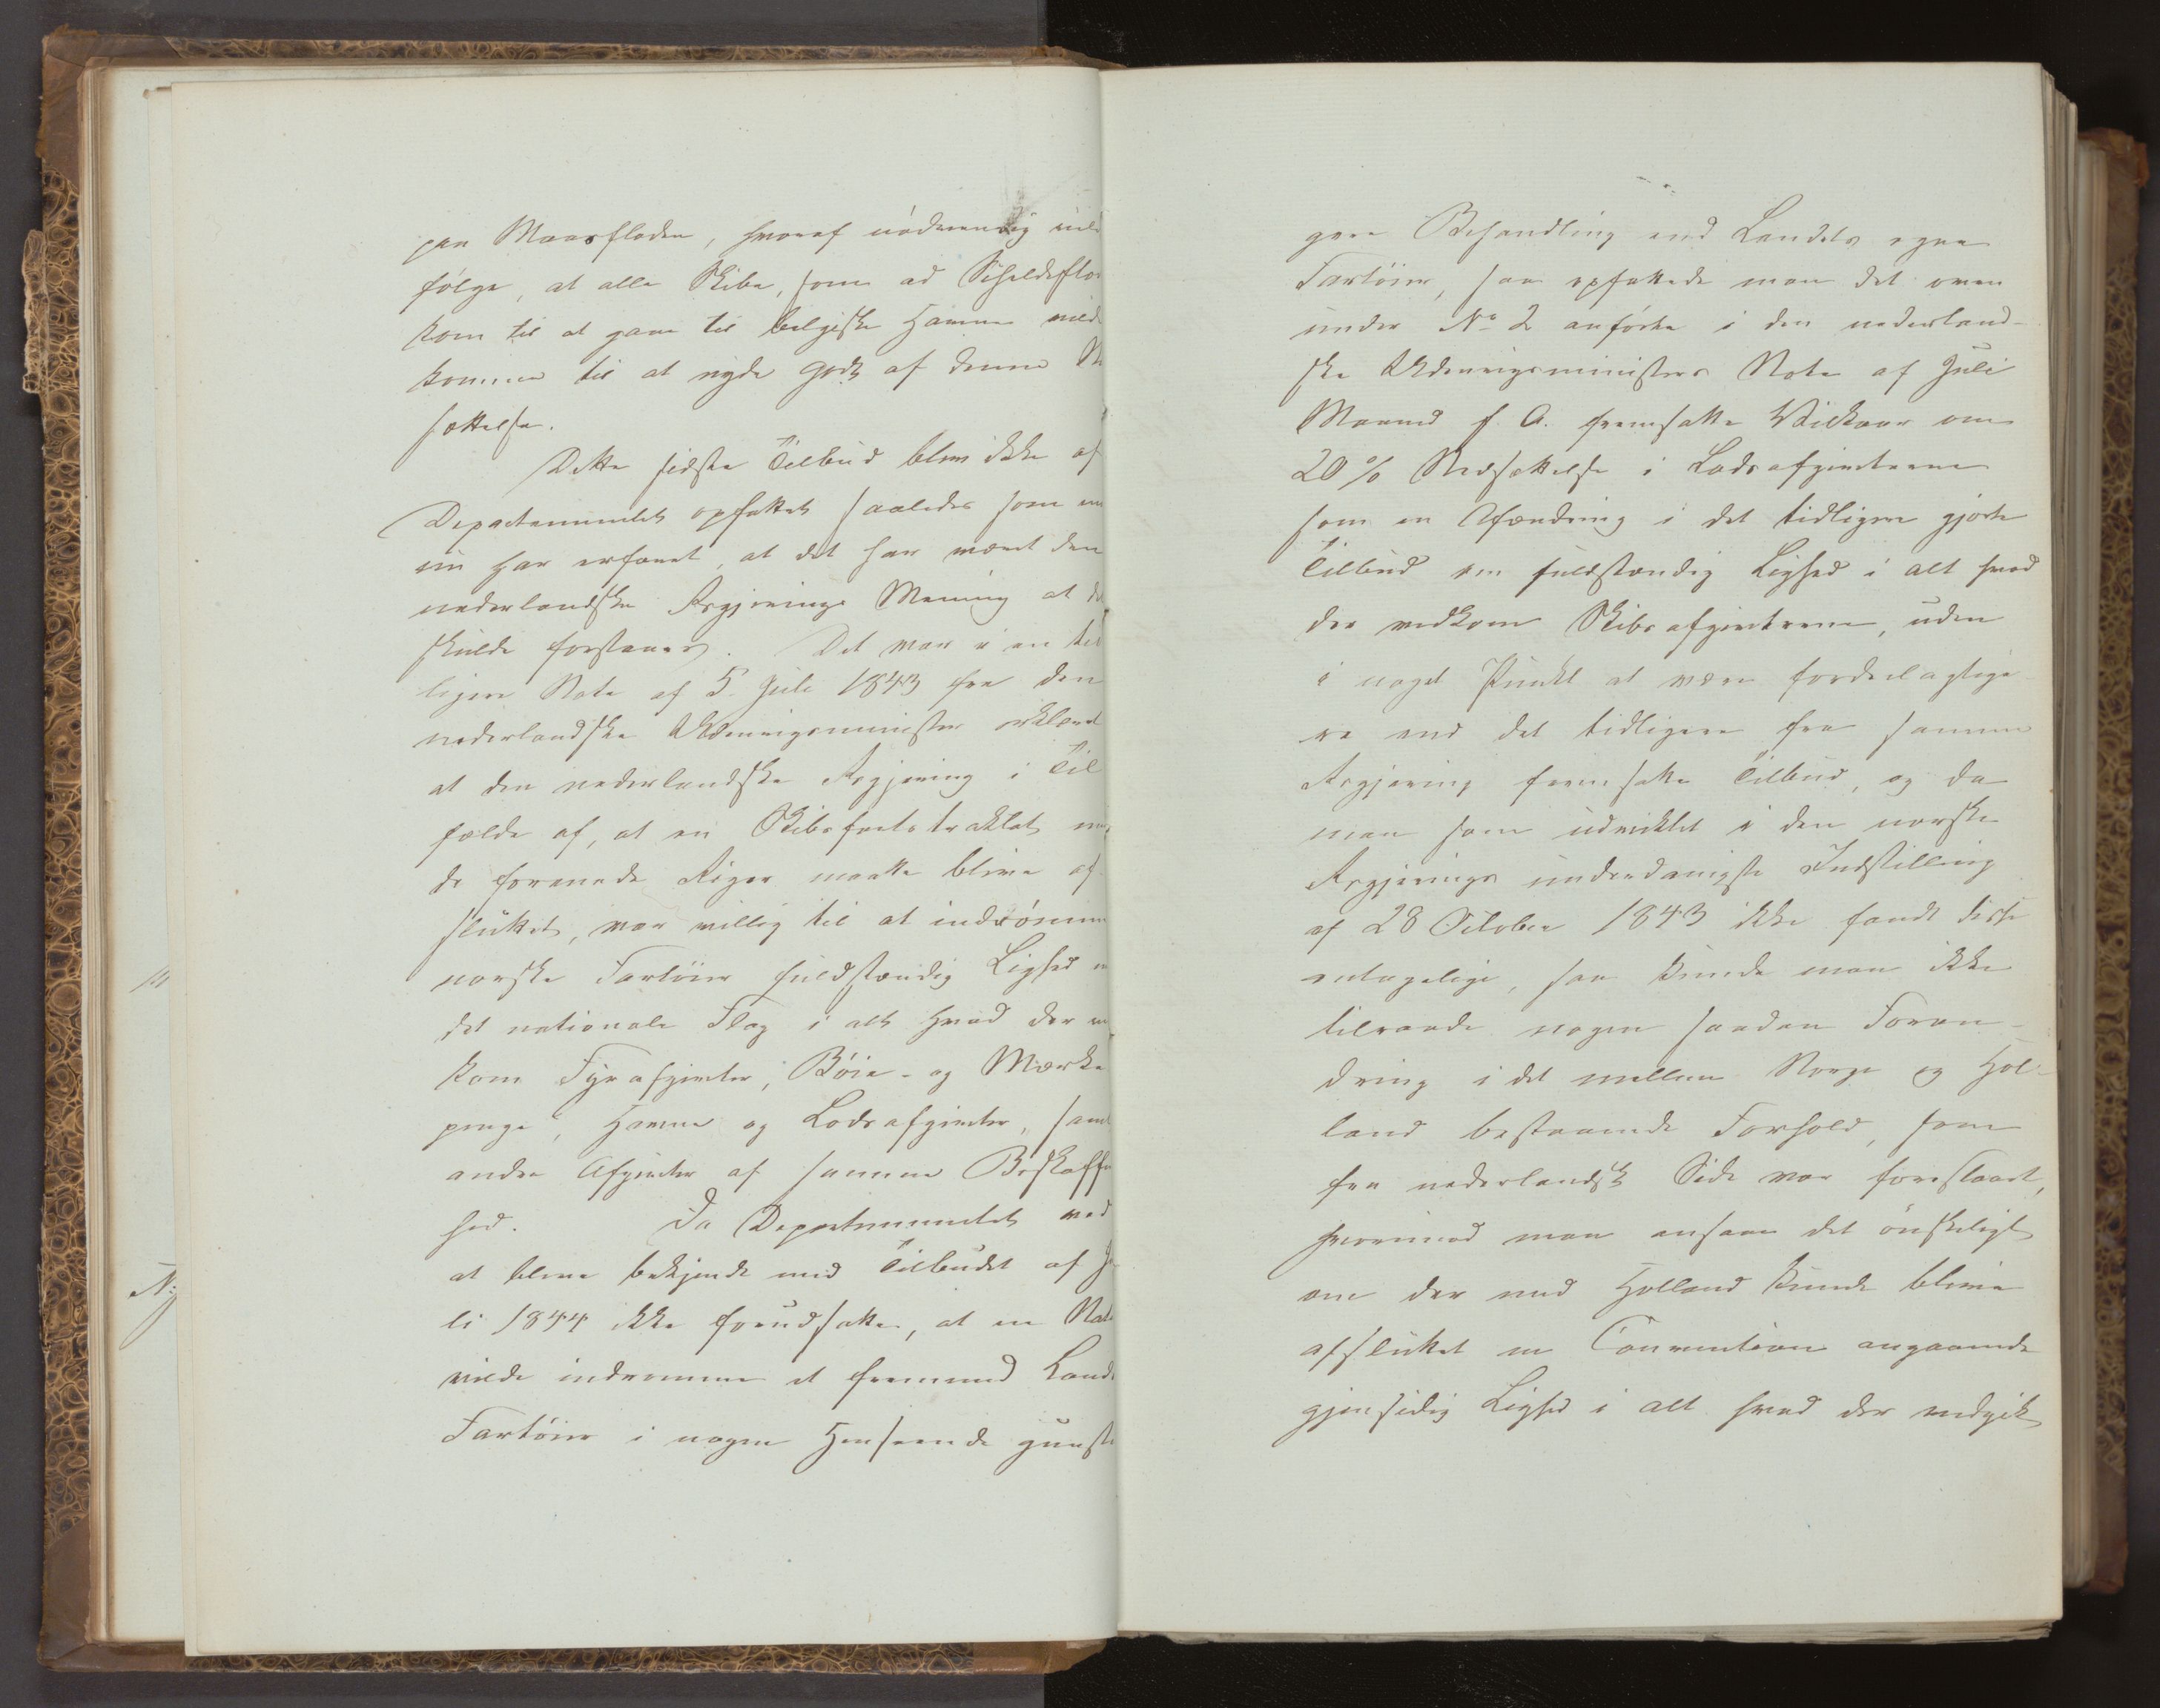 paa Maasfloden, hvoraf nödvendig vild
fölge, at alle Skibe, som ad Scheldeflo
kom til at gaae til belgiske Havne vild
komme til at nyde godt af denne N
sættelse.
Dette sidste Tilbud blev ikke af
Departementet opfattet saaledes som m
nu har erfaret, at det har været den
nederlandske Regjerings Mening at d
skulde forstaaes. Det var i en tid
ligere Note af 5 Juli 1843 fra den
nederlandske Udenrigsminister erklæret
at den nederlandske Regjering i Til
fælde af, at en Skibsfartstraktat m
de forenede Riger maatte blive af
sluttet, var villig til at indrömme
norske Fartöier fuldstændig Lighed m
det nationale Flag i alt hvad der ve
kom Fyrafgivter, Böie- og Mærke
penge, Havne og Lodsafgivter, samt
andre Afgivter af samme Beskaffen
hed. Da Departementet ved
at blive bekjendt med Tilbudet af Ju
li 1844 ikke forudsatte, at en Nat
vilde indrømme et fremmed Lands
Fartöier i nogen Henseende gunsti
gere Behandling end Landets egne
Fartöier, saa opfattede man det oven
under No 2 anförte i den nederland-
ske Udenrigsministers Note af Juli
Maaned f. A. fremsatte Vilkaar om
20 % Nedsættelse i Lodsafgivterne
som en Afændring i det tidligere gjorte
Tilbud om fuldstændig Lighed i alt hvad
der vedkom Skibsafgivterne, uden
i noget Punkt at være fordeelagtige
re end det tidligere fra samme
Regjering fremsatte Tilbud, og da
man som udviklet i den norske
Regjerings underdanigste Indstilling
af 28 October 1843 ikke fandt disse
antagelige, saa kunde man ikke
tilraade nogen saadan Foran-
dring i det mellem Norge og Hol-
land bestaaende Forhold, som
fra nederlandsk Side var foreslaaet,
hvorimod man ansaae det önskeligt
om der med Holland kunde blive
afsluttet en Convention angaaende
gjensidig Lighed i alt hvad der vedgik